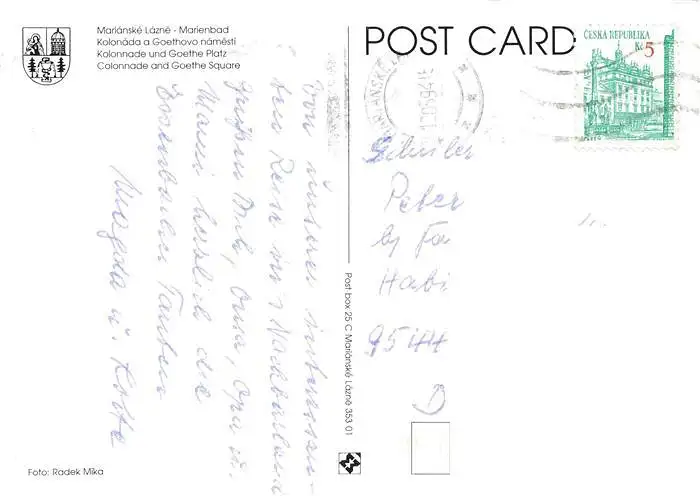 Mariánské Lázně - Marienbad
Kolonáda a Goethovo náměstí
Kolonnade und Goethe Platz
Colonnade and Goethe Square
POST CARD
ČESKÁ REPUBLIKA
Kč 5
Von unserer interessan-
ten Reise ins Nachbarland
grüßen Dich, Oma, Opa u.
Mami herzlich die
Tanten
Magda u.
Peter
by Fa
Habi
95444
D
Post box 25 C Mariánské Lázně 353 01
Foto: Radek Mika